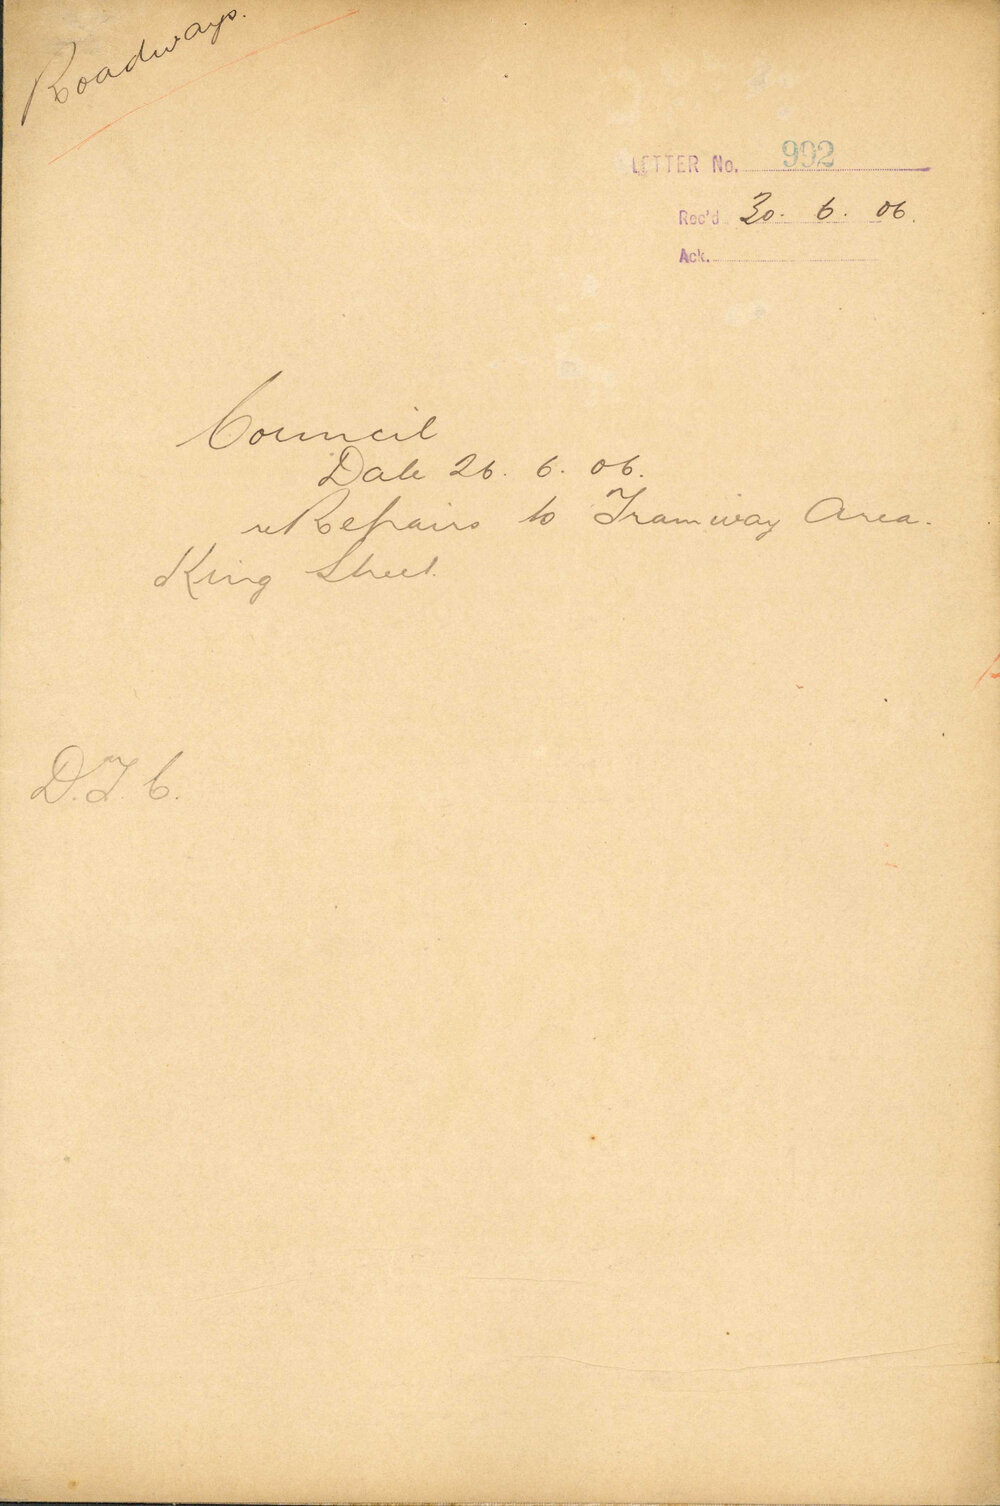 Roadways.
LETTER No. 992
Rec'd 30. 6. 06.
Ack.
Council
Date 26. 6. 06.
re Repairs to Tramway Area.
King Street.
D.T.C.